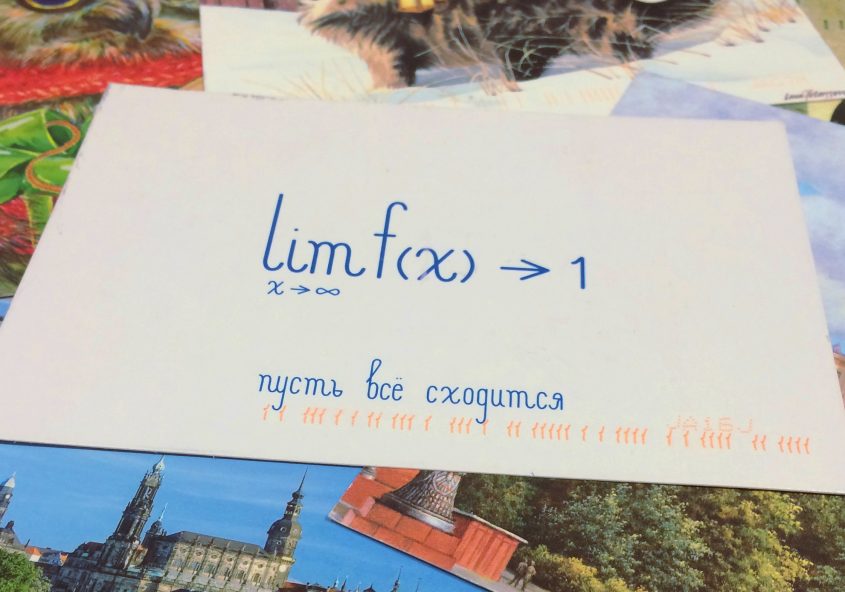 lim f(x) → 1
x → ∞
пусть всё сходится